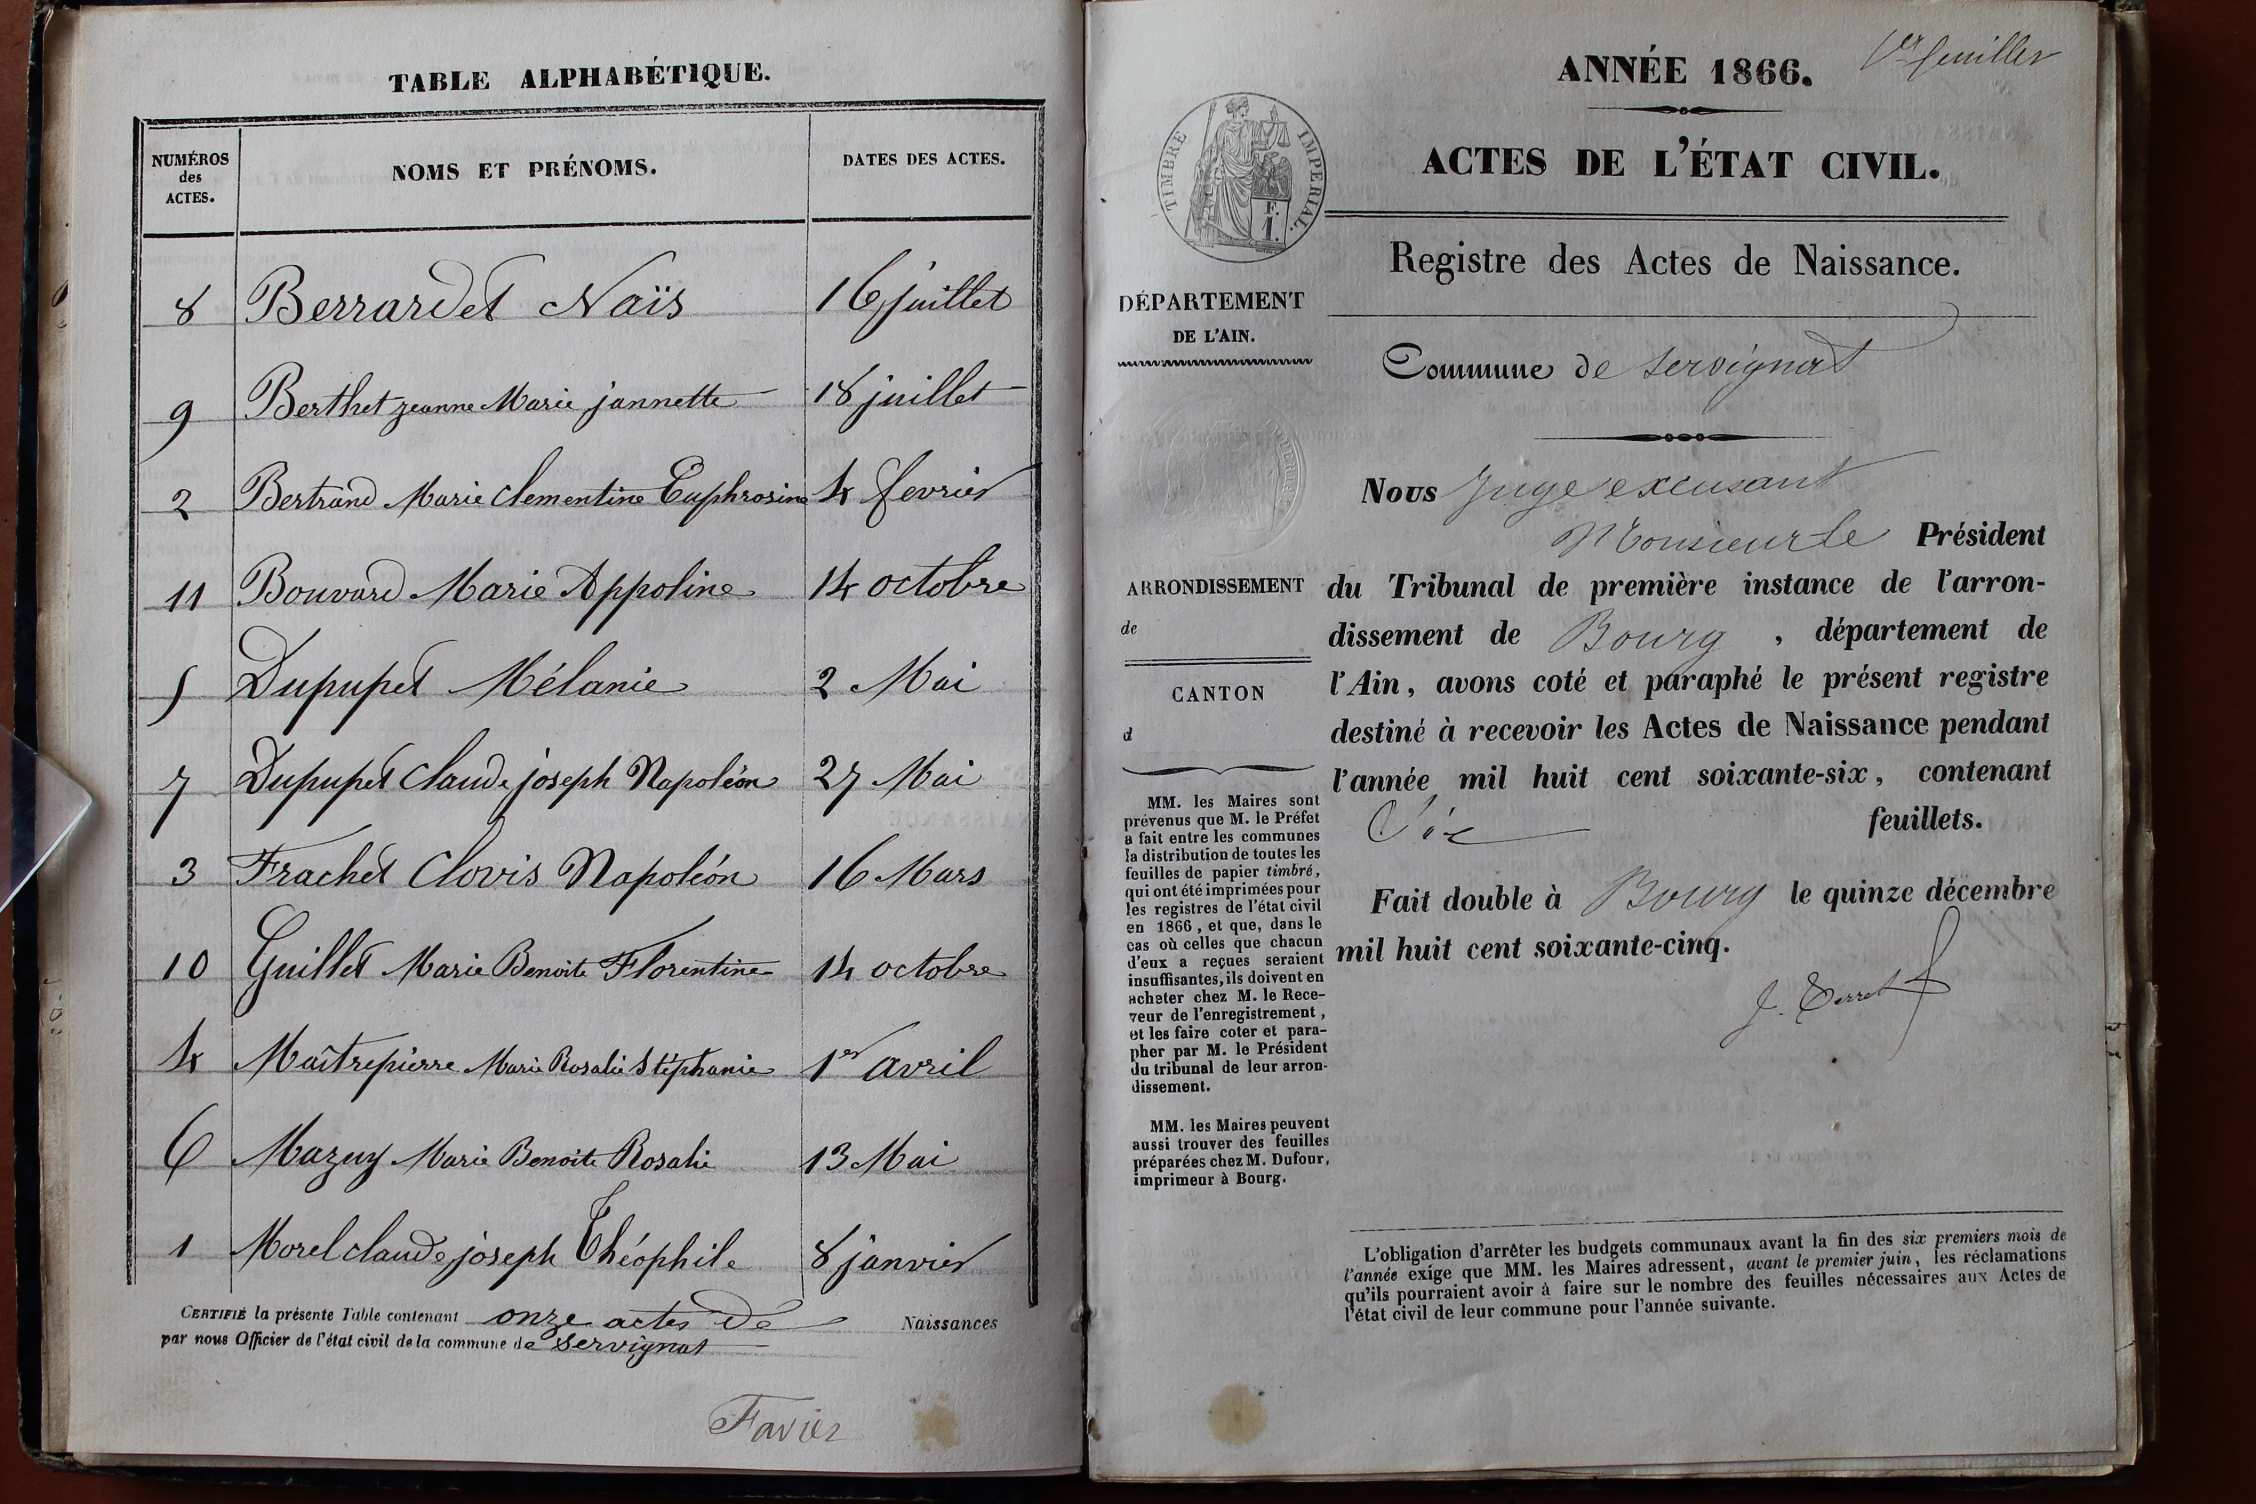 TABLE ALPHABÉTIQUE.
NUMÉROS
des
ACTES.
NOMS ET PRÉNOMS.
DATES DES ACTES.
8 Berrardet Naïs 16 juillet
9 Berthet jeanne Marie jannette 18 juillet
2 Bertrand Marie Clementine Euphrosine 4 fevrier
11 Bouvard Marie Appoline 14 octobre
5 Dupupet Mélanie 2 Mai
7 Dupupet Claude joseph Napoléon 27 Mai
3 Frachet Clovis Napoléon 16 Mars
10 Guillet Marie Benoite Florentine 14 octobre
4 Maîtrepierre Marie Rosalie Stéphanie 1er avril
6 Mazuy Marie Benoite Rosalie 13 Mai
1 Morel claude joseph Théophile 8 janvier
CERTIFIÉ la présente Table contenant onze actes de Naissances
par nous Officier de l'état civil de la commune de Servignat
Favier
1er feuillet
ANNÉE 1866.
TIMBRE IMPERIAL.
F.
1.
ACTES DE L'ÉTAT CIVIL.
Registre des Actes de Naissance.
DÉPARTEMENT
DE L'AIN.
Commune de Servignat
Nous Juge excusant
Monsieur le Président
du Tribunal de première instance de l'arron-
dissement de Bourg , département de
l'Ain, avons coté et paraphé le présent registre
destiné à recevoir les Actes de Naissance pendant
l'année mil huit cent soixante-six, contenant
Six feuillets.
Fait double à Bourg le quinze décembre
mil huit cent soixante-cinq.
ARRONDISSEMENT
de
CANTON
d
MM. les Maires sont
prévenus que M. le Préfet
a fait entre les communes
la distribution de toutes les
feuilles de papier timbré,
qui ont été imprimées pour
les registres de l'état civil
en 1866, et que, dans le
cas où celles que chacun
d'eux a reçues seraient
insuffisantes, ils doivent en
acheter chez M. le Rece-
veur de l'enregistrement,
et les faire coter et para-
pher par M. le Président
du tribunal de leur arron-
dissement.
MM. les Maires peuvent
aussi trouver des feuilles
préparées chez M. Dufour,
imprimeur à Bourg.
L'obligation d'arrêter les budgets communaux avant la fin des six premiers mois de
l'année exige que MM. les Maires adressent, avant le premier juin, les réclamations
qu'ils pourraient avoir à faire sur le nombre des feuilles nécessaires aux Actes de
l'état civil de leur commune pour l'année suivante.